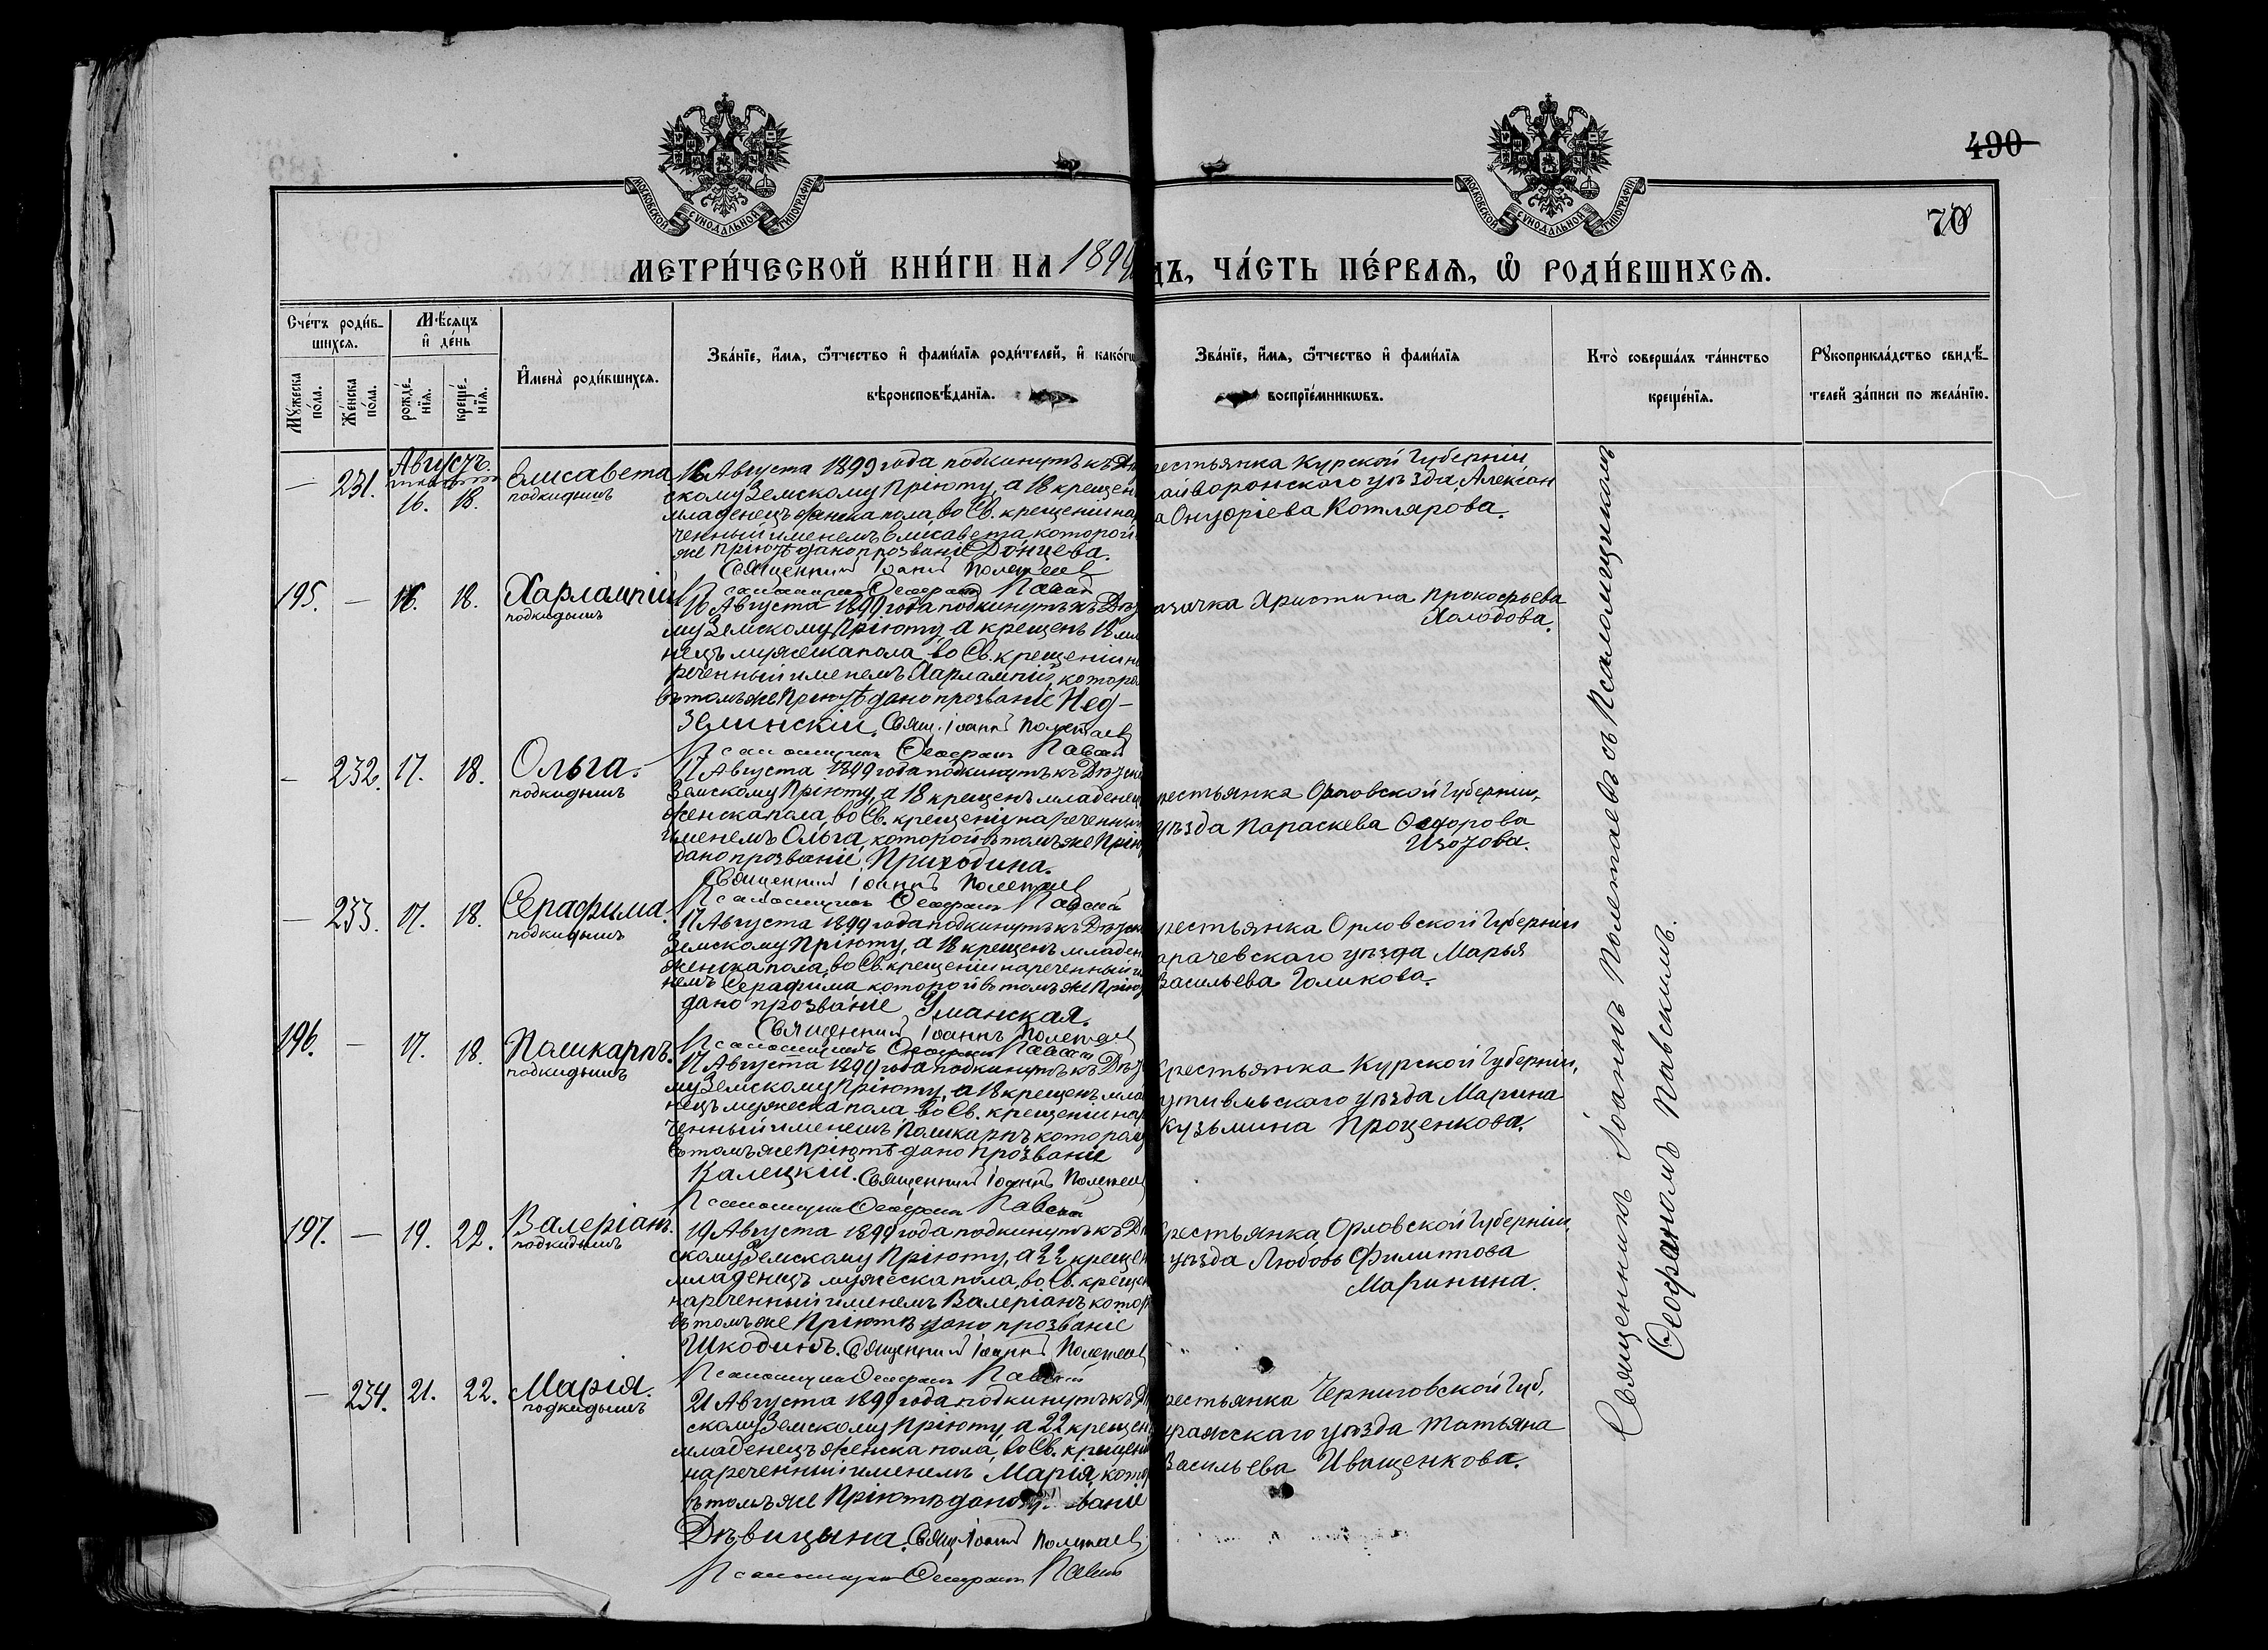 490
70
МОСКОВСКОЙ СѴНОДАЛЬНОЙ ТИПОГРАФІИ
МОСКОВСКОЙ СѴНОДАЛЬНОЙ ТИПОГРАФІИ
МЕТРИ́ЧЕСКОЙ КНИ́ГИ НА 1899
ДЪ, ЧА́СТЬ ПЕ́РВАѦ, Ѡ҆ РОДИ́ВШИХСѦ.
Сче́тъ роди́в-
шихсѧ.
Мꙋ́жеска по́ла.
Же́нска по́ла.
Мѣ́сѧцъ
и҆ де́нь
рожде́-
нїѧ.
креще́-
нїѧ.
И҆мена̀ роди́вшихсѧ.
Зва́нїе, и҆́мѧ, ѻ҆́тчество и҆ фами́лїѧ роди́телей, и҆ како́гѡ
вѣроисповѣ́данїѧ.
Зва́нїе, и҆́мѧ, ѻ҆́тчество и҆ фами́лїѧ
воспрїе́мникѡвъ.
Кто̀ соверша́лъ та́инство
креще́нїѧ.
Рꙋкоприкла́дство свидѣ́-
телей за́писи по жела́нїю.
Августъ.
— 231. 16. 18. Елисавета
подкидышъ
16 Августа 1899 года подкинутъ къ Дѣ
скому Земскому Пріюту, а 18 крещен
младенецъ женска пола, во Св. крещеніи на
ченный именемъ Елисавета, которой
же Пріютѣ дано прозваніе Донцева.
Священникъ Іоаннъ Полетаев
Псаломщикъ Феофанъ Павский
рестьянка Курской Губерніи
айворонскаго уѣзда, Алексан
а Онуфріева Котлярова.
195. — 16. 18. Харлампій
подкидышъ
16 Августа 1899 года подкинутъ къ Дѣт
му Земскому Пріюту, а крещенъ 18 мла
нецъ мужеска пола, во Св. крещеніи на
реченный именемъ Харлампій, которо
въ томъ же Пріютѣ дано прозваніе Нед-
зелинскій. Свящ. Іоаннъ Полетаев
Псаломщикъ Феофанъ Павский
азачка Христина Прокофьева
Холодова.
— 232. 17. 18. Ольга.
подкидышъ
17 Августа 1899 года подкинутъ къ Дѣтск
Земскому Пріюту, а 18 крещенъ младенец
женска пола, во Св. крещеніи нареченный
именемъ Ольга, которой въ томъ же Прію
дано прозваніе Приходина.
Священникъ Іоаннъ Полетаев
Псаломщикъ Феофанъ Павский
рестьянка Орловской Губерніи,
уѣзда Параскева Федорова
Изотова.
— 233. 17. 18. Серафима.
подкидышъ
17 Августа 1899 года подкинутъ къ Дѣтск
Земскому Пріюту, а 18 крещенъ младен
женска пола, во Св. крещеніи нареченный и
немъ Серафима которой въ томъ же Прію
дано прозваніе Уманская.
Священникъ Іоаннъ Полетаев
Псаломщикъ Феофанъ Павский
рестьянка Орловской Губерніи
арачевскаго уѣзда Марья
Васильева Голикова.
196. — 17. 18. Поликарпъ.
подкидышъ
17 Августа 1899 года подкинутъ къ Дѣт
му Земскому Пріюту, а 18 крещенъ мла
нецъ мужеска пола во Св. крещеніи нар
ченный именемъ Поликарпъ котором
въ томъ же Пріютѣ дано прозваніе
Калецкій. Священникъ Іоаннъ Полетаев
Псаломщикъ Феофанъ Павский
Крестьянка Курской Губерніи,
утивльскаго уѣзда Марина
Кузьмина Проценкова.
197. — 19. 22. Валеріанъ.
подкидышъ
19 Августа 1899 года подкинутъ къ Дѣ
скому Земскому Пріюту, а 22 крещен
младенецъ мужеска пола, во Св. крещен
нареченный именемъ Валеріанъ котор
въ томъ же Пріютѣ дано прозваніе
Шкодинъ. Священникъ Іоаннъ Полетаев
Псаломщикъ Феофанъ Павский
рестьянка Орловской Губерніи,
уѣзда Любовь Филиппова
Маринина.
— 234. 21. 22. Марія.
подкидышъ
21 Августа 1899 года подкинутъ къ Дѣ
скому Земскому Пріюту, а 22 крещен
младенецъ женска пола, во Св. крещен
нареченный именемъ Марія, котор
въ томъ же Пріютѣ дано ваніе
Дѣвицына. Свящ. Іоаннъ Полетаев
Псаломщикъ Феофанъ Павский
рестьянка Черниговской Губ.
уражскаго уѣзда Татьяна
Васильева Иващенкова.
Священникъ Іоаннъ Полетаевъ съ Псаломщикомъ
Феофаномъ Павскимъ.